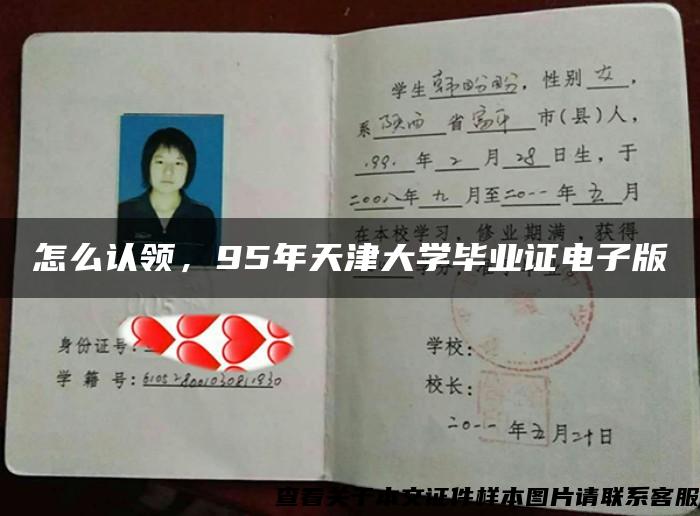 学生韩盼盼,性别女,
系陕西省富平市(县)人,
1991年2月28日生,于
二00八年九月至二0一一年五月
在本校学习,修业期满,获得
怎么认领,95年天津大学毕业证电子版
身份证号:
学籍号:
学校:
校长:
二0一一年五月二十日
查看关于本文证件样本图片请联系客服